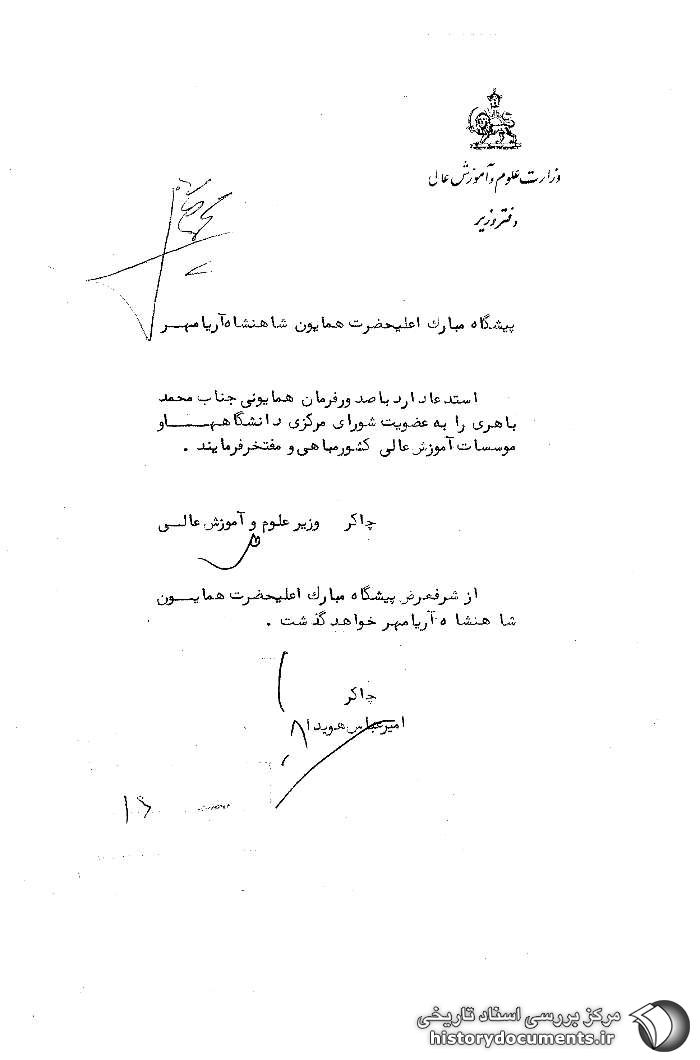 وزارت علوم و آموزش عالی
دفتر وزیر
پیشگاه مبارك اعلیحضرت همایون شاهنشاه آریامهر
استدعا دارد با صدور فرمان همایونی جناب محمد
باهری را به عضویت شورای مرکزی دانشگاهها و
موسسات آموزش عالی کشور مباهی و مفتخر فرمایند .
چاکر وزیر علوم و آموزش عالی
از شرفعرض پیشگاه مبارك اعلیحضرت همایون
شاهنشاه آریامهر خواهد گذشت .
چاکر
امیرعباس هویدا
مرکز بررسی اسناد تاریخی
historydocuments.ir